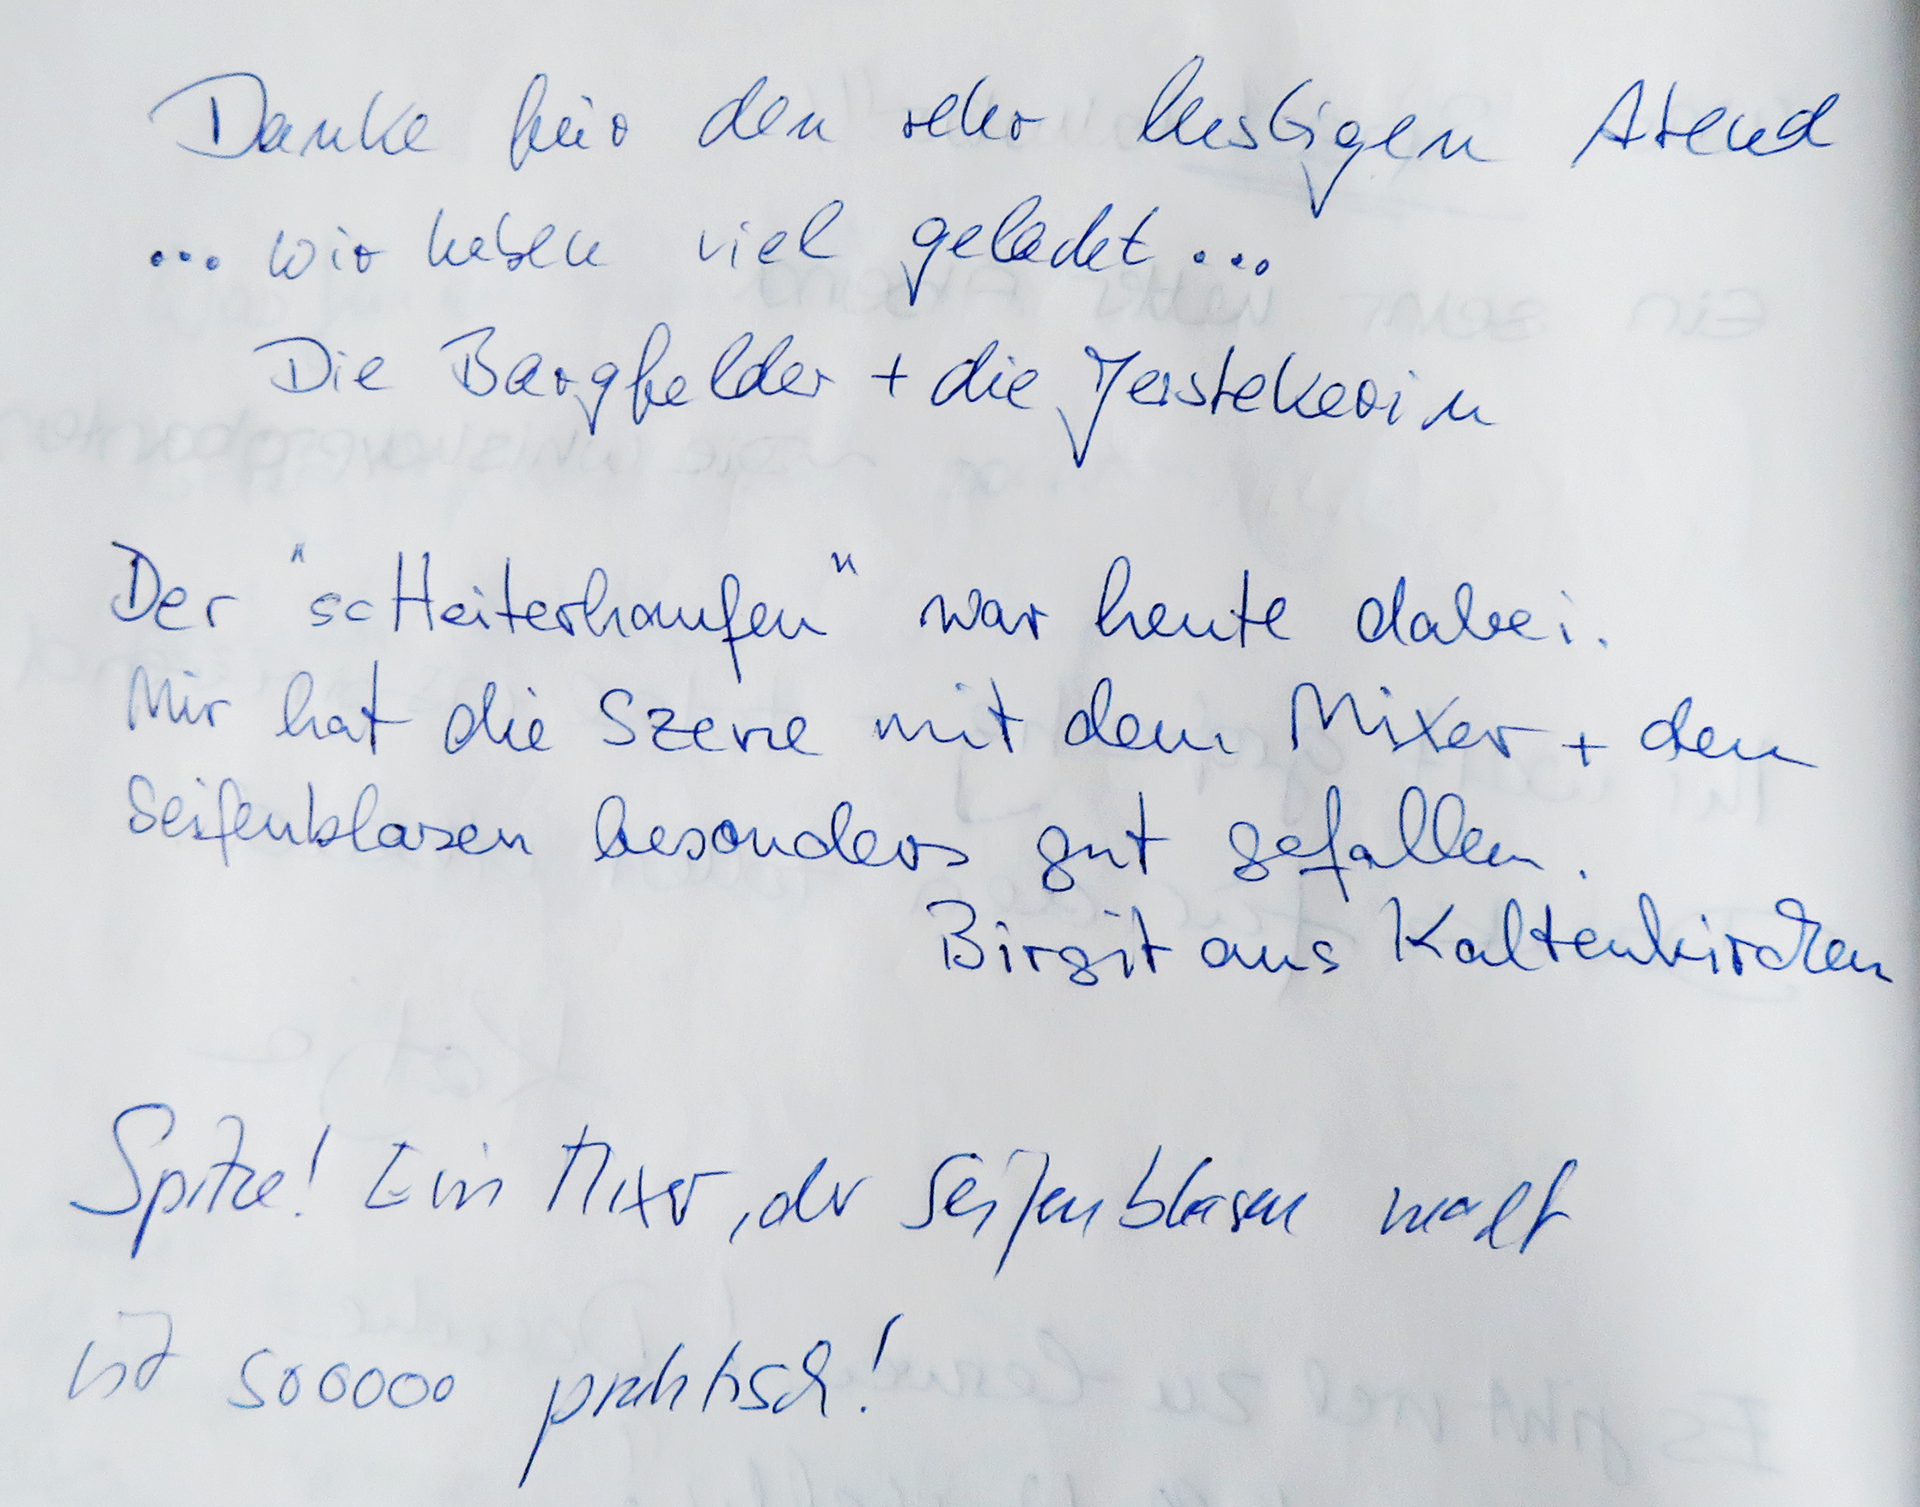 Danke für den sehr lustigen Abend
... wir haben viel gelacht...
Die Bargfelder + die Jerstekerin
Der "scHeiterhaufen" war heute dabei.
Mir hat die Szene mit dem Mixer + den
Seifenblasen besonders gut gefallen.
Birgit aus Kaltenkirchen
Spitze! Ein Mixer, der Seifenblasen macht
ist sooooo praktisch!